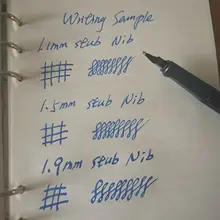 Writing Sample
1.1mm stub Nib
1.5mm stub Nib
1.9mm stub Nib